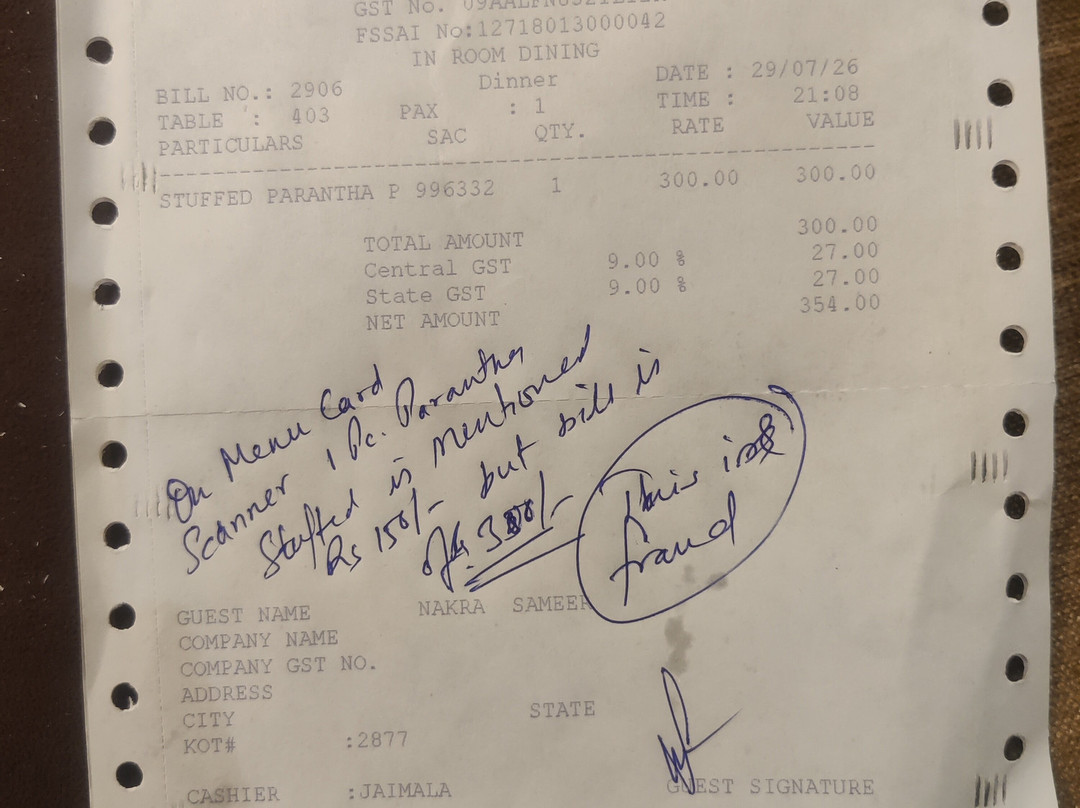 GST No.
FSSAI No:12718013000042
IN ROOM DINING
Dinner
BILL NO.: 2906 DATE : 29/07/26
TABLE : 403 PAX : 1 TIME : 21:08
PARTICULARS SAC QTY. RATE VALUE
STUFFED PARANTHA P 996332 1 300.00 300.00
TOTAL AMOUNT 300.00
Central GST 9.00 % 27.00
State GST 9.00 % 27.00
NET AMOUNT 354.00
On Menu Card
Scanner 1 Pc. Parantha
Stuffed is mentioned
Rs 150/- but bill is
of Rs. 300/-
This is
fraud
GUEST NAME NAKRA SAMEER
COMPANY NAME
COMPANY GST NO.
ADDRESS
CITY STATE
KOT# :2877
CASHIER :JAIMALA GUEST SIGNATURE